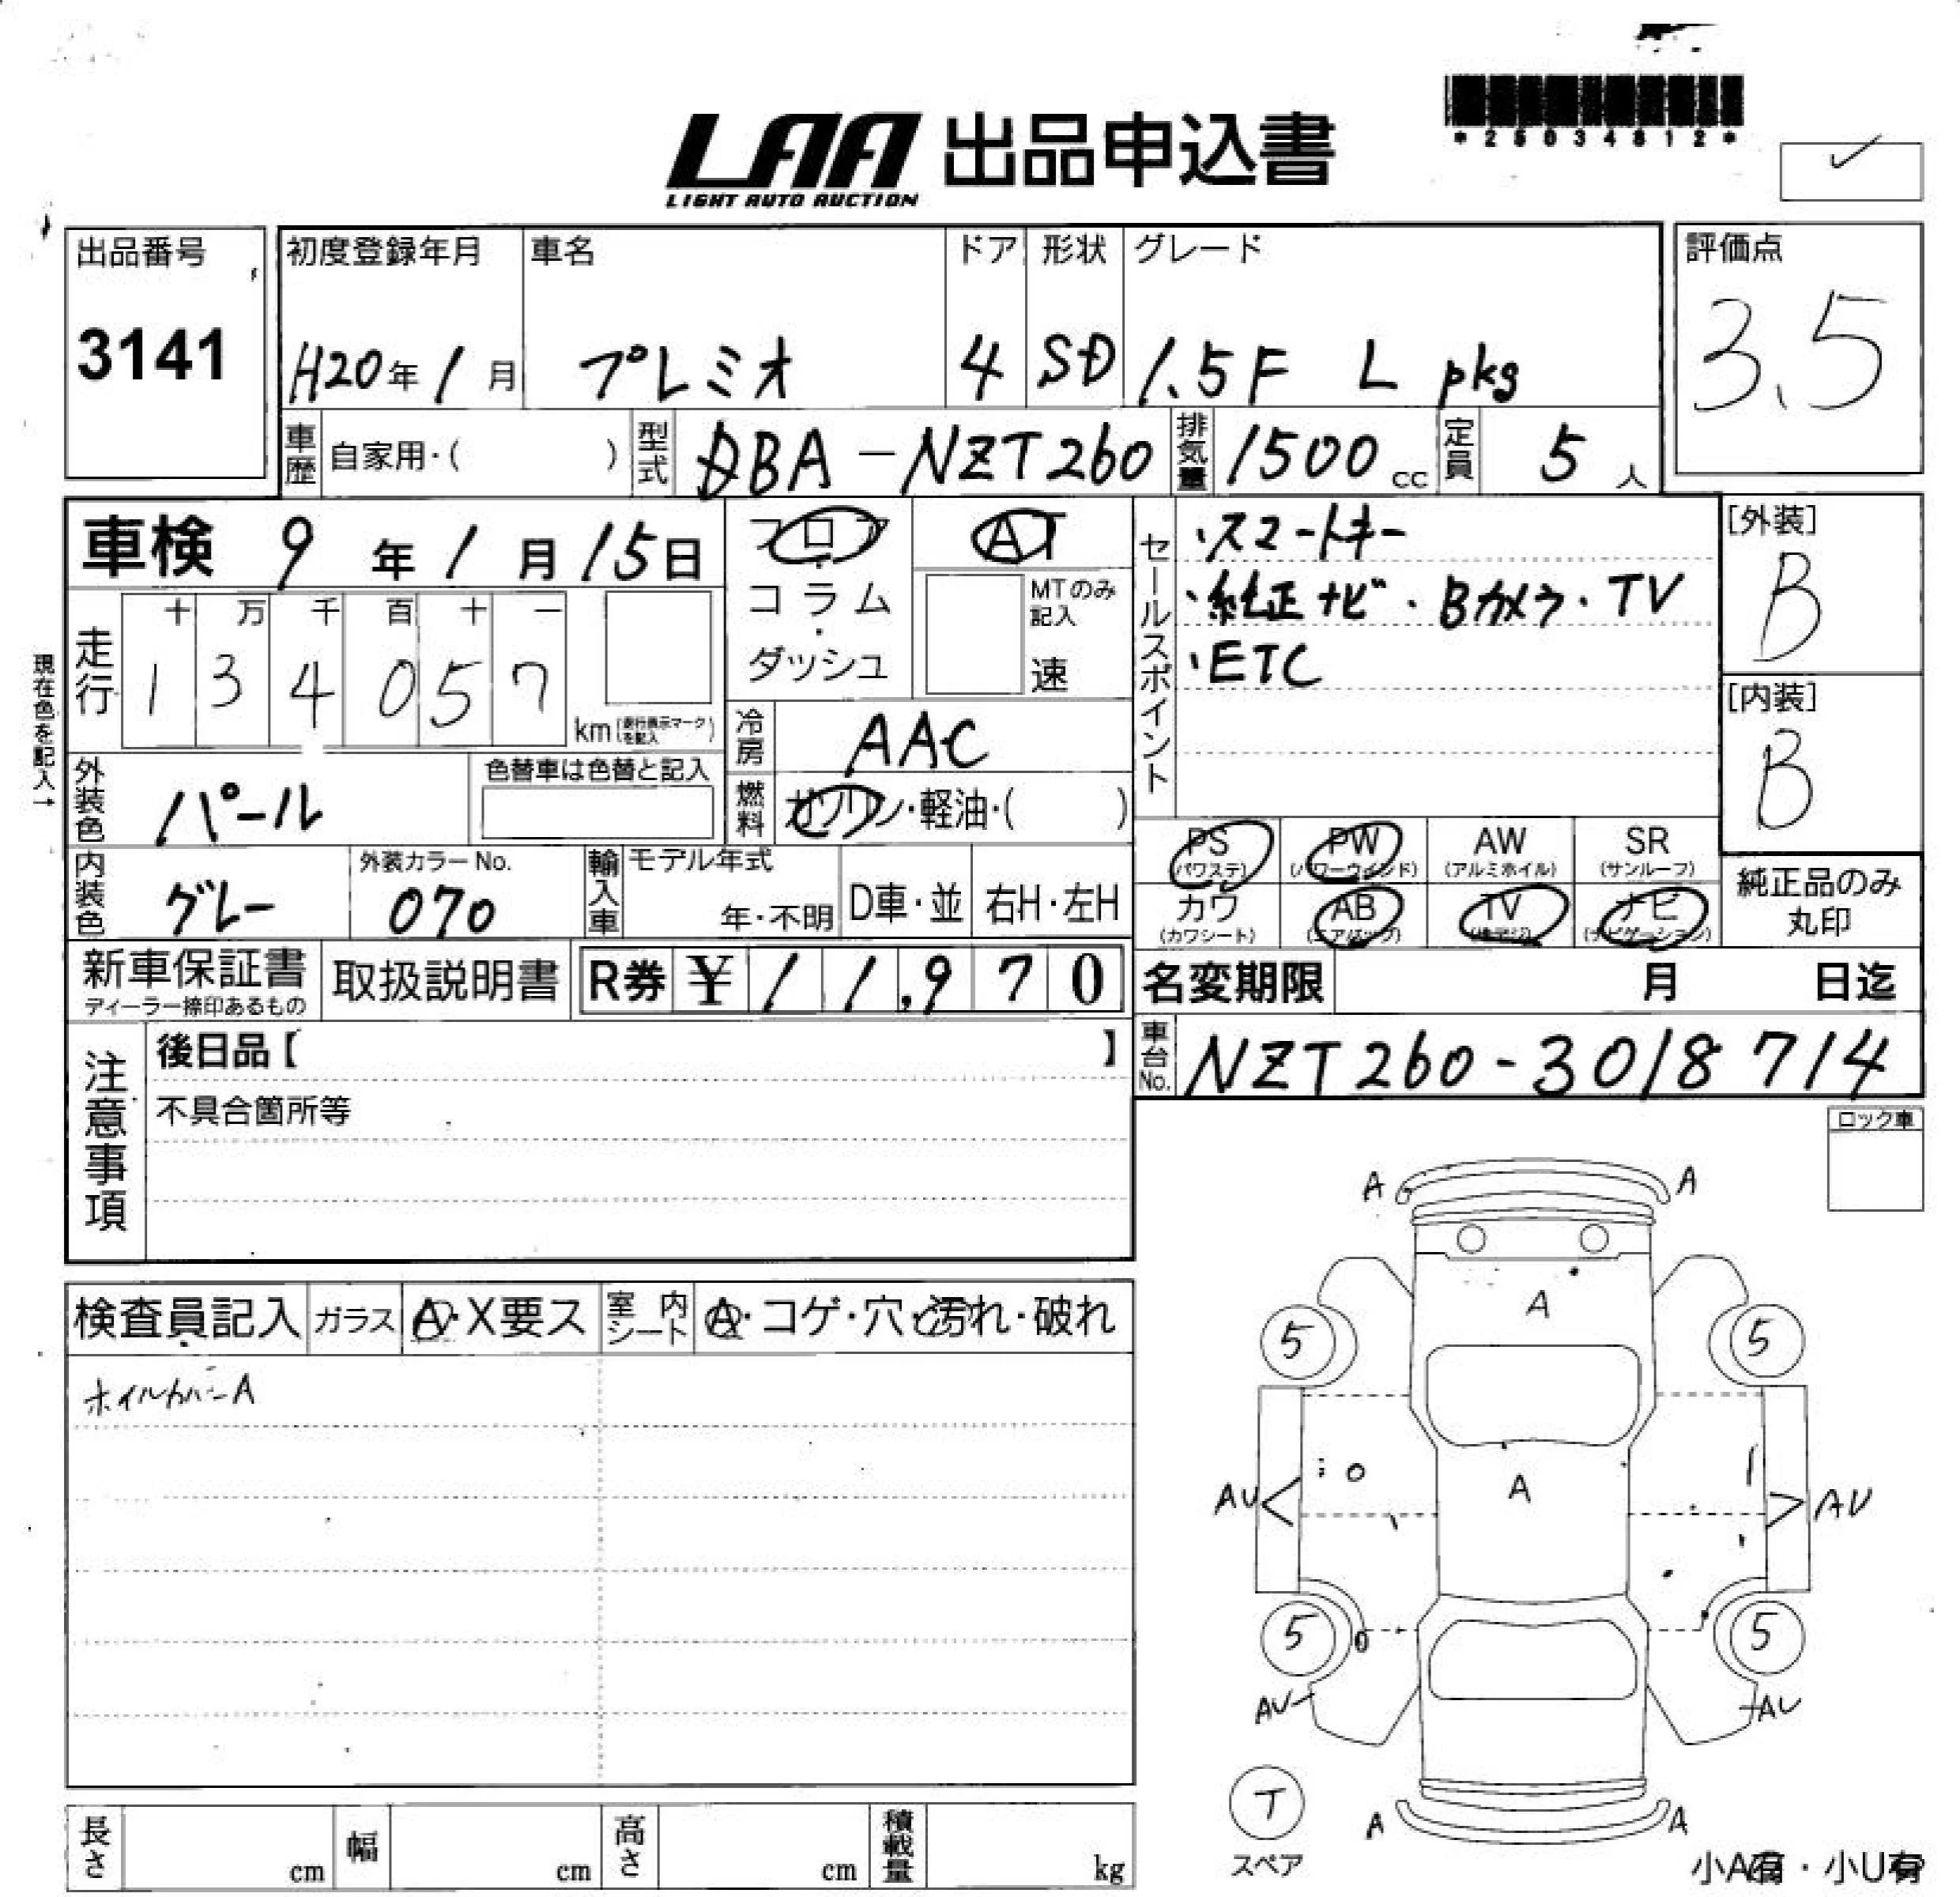 *25034812*
LAA 出品申込書
LIGHT AUTO AUCTION
出品番号
3141
初度登録年月 車名 ドア 形状 グレード
H20年1月 プレミオ 4 SD 1.5F L pkg
評価点
3.5
車歴 自家用・( ) 型式 DBA-NZT260 排気量 1500cc 定員 5人
車検 9年1月15日
フロア・コラム・ダッシュ
AT
MTのみ記入
速
セールスポイント
・スマートキー
・純正ナビ・Bカメラ・TV
・ETC
[外装]
B
[内装]
B
現在色を記入→
走行
十 万 千 百 十 一
1 3 4 0 5 7
km(走行表示マークを記入)
冷房 AAC
燃料 ガソリン・軽油・( )
外装色 パール
色替車は色替と記入
PS (パワステ) PW (パワーウインド) AW (アルミホイル) SR (サンルーフ)
カワ (カワシート) AB (エアバッグ) TV ナビ (ナビゲーション)
純正品のみ丸印
内装色 グレー
外装カラーNo.
070
輸入車 モデル年式
年・不明 D車・並 右H・左H
新車保証書
ディーラー捺印あるもの
取扱説明書
R券 ¥11,970
名変期限 月 日迄
車台No. NZT260-3018714
注意事項
後日品【 】
不具合箇所等
ロック車
検査員記入 ガラス A・X要ス 室内シート A・コゲ・穴・汚れ・破れ
ホイルカバーA
A A
A
5 5
A
AU AU
5 5
AU AU
T
スペア
A A
長さ cm 幅 cm 高さ cm 積載量 kg
小A有・小U有